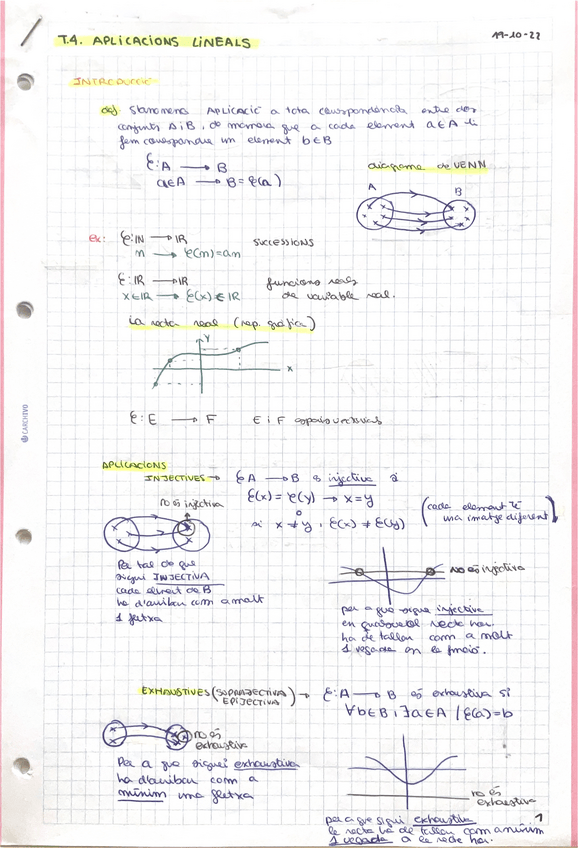 T.4. APLICACIONS LINEALS
19-10-22
INTRODUCCIÓ
def S'anomena APLICACIÓ a tota correspondència entre dos
conjunts A i B, de manera que a cada element a∈A li
fem correspondre un element b∈B
φ: A → B
a∈A → B = φ(a)
diagrama de VENN
A B
ex: φ: IN → IR
successions
n → φ(n) = an
φ: IR → IR
funcions reals
x∈IR → φ(x) ∈ IR
de variable real.
la recta real (rep. gràfica)
Y
x
φ: E → F E i F espais vectorials
APLICACIONS
INJECTIVES → φ A → B és injectiva si
φ(x) = φ(y) → x = y
o
si x ≠ y, φ(x) ≠ φ(y)
(cada element té
una imatge diferent)
no és injectiva
Per tal de que
sigui INJECTIVA
cada element de B
ha d'arribar com a molt
1 fletxa
NO és injectiva
per a que sigui injectiva
en qualsevol recta hor.
ha de tallar com a molt
1 vegada en la funció.
EXHAUSTIVES (SUPRAJECTIVA
EPIJECTIVA) → φ: A → B és exhaustiva si
∀b∈B, ∃a∈A / φ(a) = b
no és
exhaustiva
Per a que sigui exhaustiva
ha d'arribar com a
mínim una fletxa
no és
exhaustiva
per a que sigui exhaustiva
la recta ha de tallar com a mínim
1 vegada a la recta hor.
1
CARCHIVO